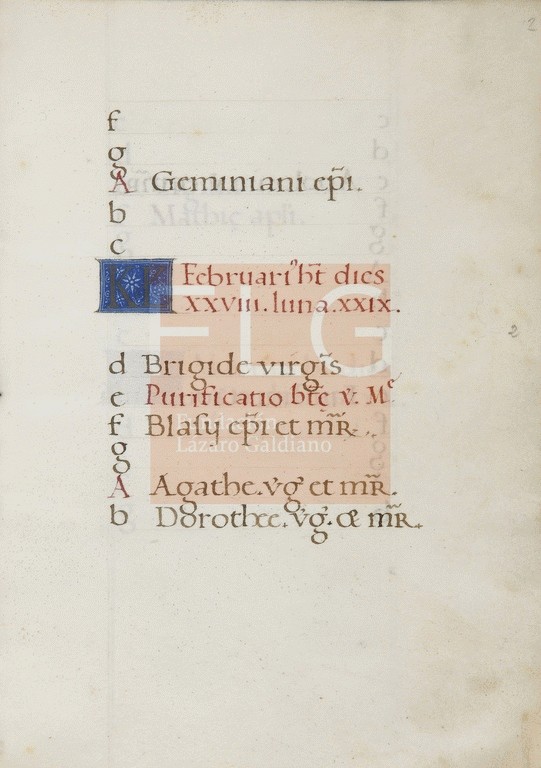 2
f
g
A Geminiani ep̃i.
b
c
KL Februariꝰ h̃t dies
XXVIII. luna. XXIX.
2
d Brigide virgĩs
e Purificatio bt̃ę v. Mᵉ
f Blasij ep̃i et m̃r̃.
g
A Agathe. v̾g̾ et m̃r̃.
b Dorothee. v̾g̾. & m̃r̃.
FLG
Fundación
Lázaro Galdiano